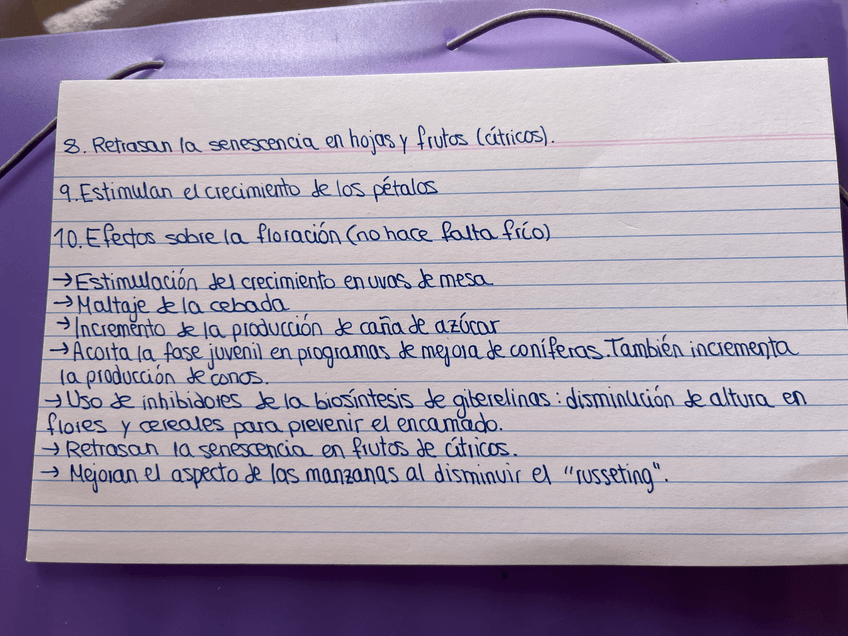 8. Retrasan la senescencia en hojas y frutos (cítricos).
9. Estimulan el crecimiento de los pétalos
10. Efectos sobre la floración (no hace falta frío)
→ Estimulación del crecimiento en uvas de mesa
→ Maltaje de la cebada
→ Incremento de la producción de caña de azúcar
→ Acorta la fase juvenil en programas de mejora de coníferas. También incrementa
la producción de conos.
→ Uso de inhibidores de la biosíntesis de giberelinas: disminución de altura en
flores y cereales para prevenir el encamado.
→ Retrasan la senescencia en frutos de cítricos.
→ Mejoran el aspecto de las manzanas al disminuir el "russeting".